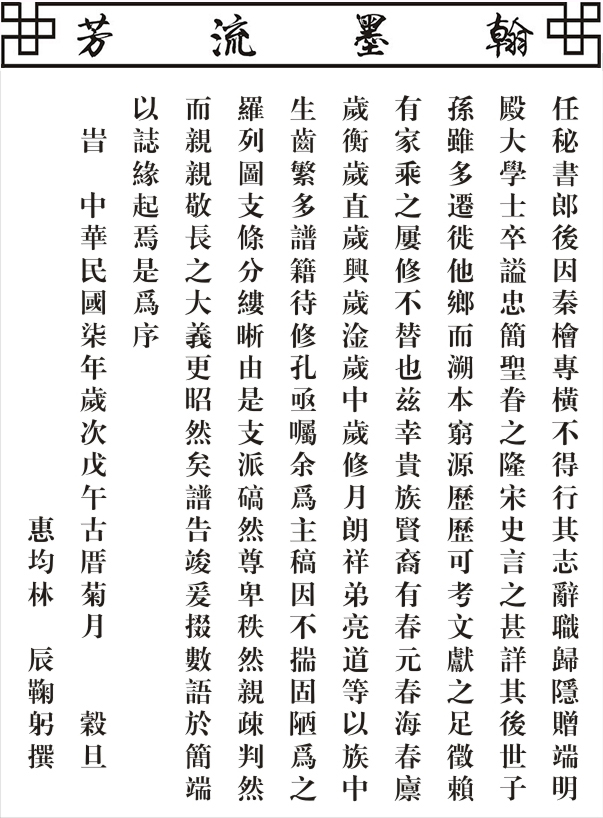 翰墨流芳
任秘書郎後因秦檜專橫不得行其志辭職歸隱贈端明
殿大學士卒謚忠簡聖眷之隆宋史言之甚詳其後世子
孫雖多遷徙他鄉而溯本窮源歷歷可考文獻之足徵賴
有家乘之屢修不替也茲幸貴族賢裔有春元春海春廩
歲衡歲直歲興歲淦歲中歲修月朗祥弟亮道等以族中
生齒繁多譜籍待修孔亟囑余爲主稿因不揣固陋爲之
羅列圖支條分縷晰由是支派碻然尊卑秩然親疎判然
而親親敬長之大義更昭然矣譜告竣爰掇數語於簡端
以誌緣起焉是爲序
旹 中華民國柒年歲次戊午古厝菊月 穀旦
惠均林 辰鞠躬撰